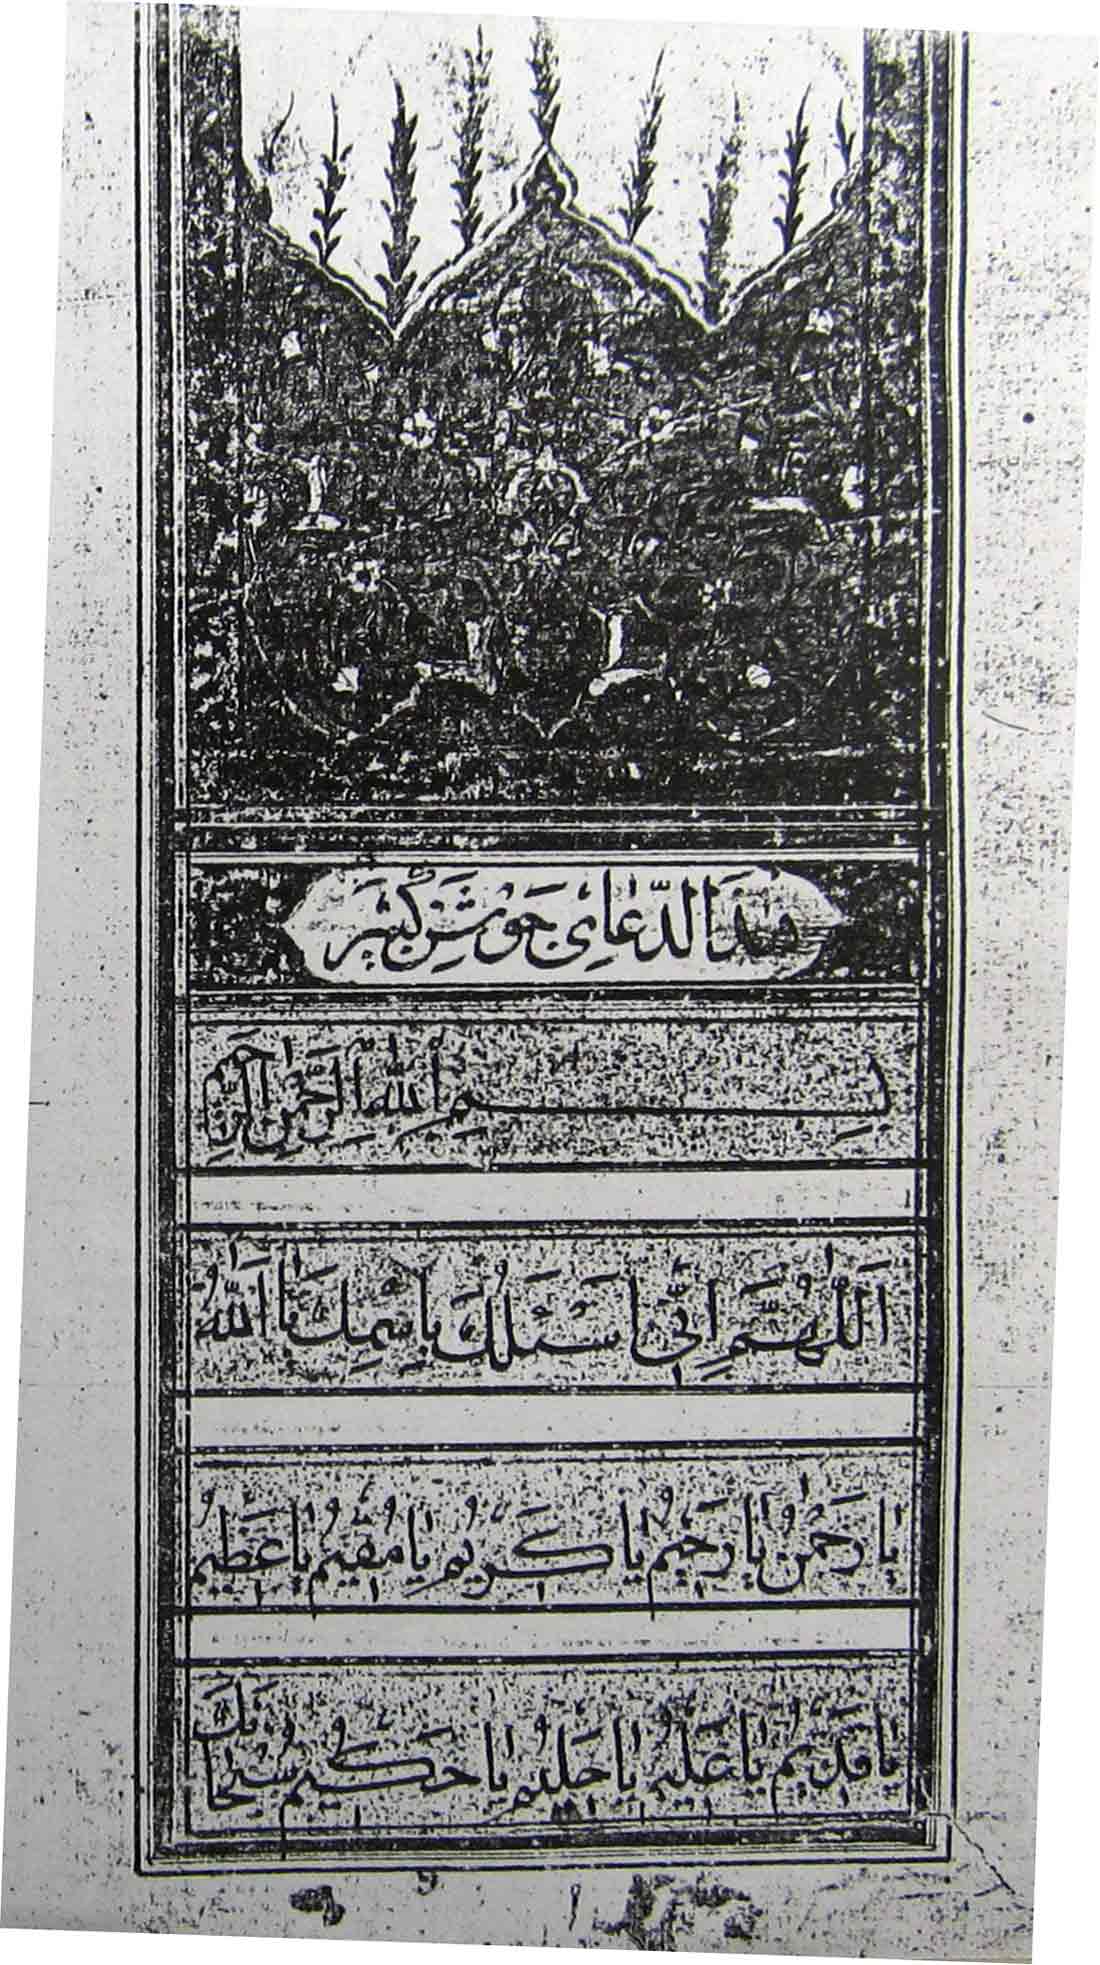 هٰذَا الدُّعَایِ جَوْشَنِ كَبٖيرْ
بِسْمِ اللّٰهِ الرَّحْمٰنِ الرَّحٖيمِ
اَللّٰهُمَّ اِنّٖى اَسْئَلُكَ بِاسْمِكَ يَا اَللّٰهُ
يَا رَحْمٰنُ يَا رَحٖيمُ يَا كَرٖيمُ يَا مُقٖيمُ يَا عَظٖيمُ
يَا قَدٖيمُ يَا عَلٖيمُ يَا حَلٖيمُ يَا حَكٖيمُ سُبْحَانَكَ